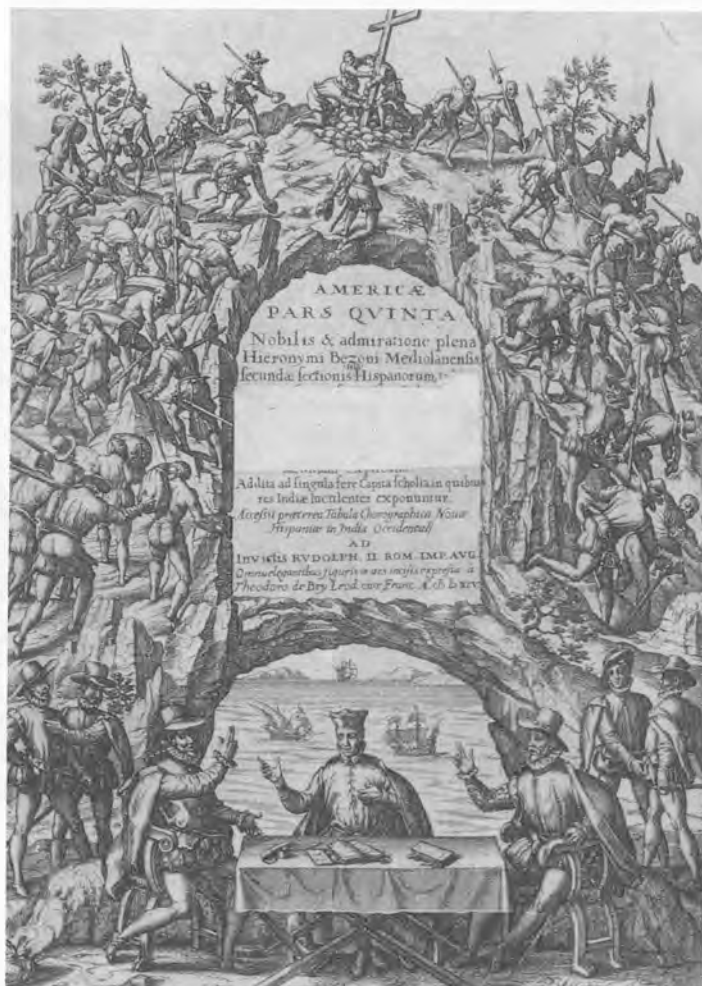 AMERICÆ
PARS QVINTA
Nobilis & admiratione plena
Hieronymi Bezoni Mediolanensis
secundæ sectionis Hispanorum,
Addita ad singula fere Capita scholia, in quibus
res Indiæ luculenter exponuntur.
Accessit præterea Tabula Chorographica Novæ
Hispaniæ in India Occidentali
AD
Invictis RVDOLPH. II. ROM. IMP. AVG.
Omnia elegantibus figuris in aes incisis expressa à
Theodoro de Bry Leod. cive Franc. A°